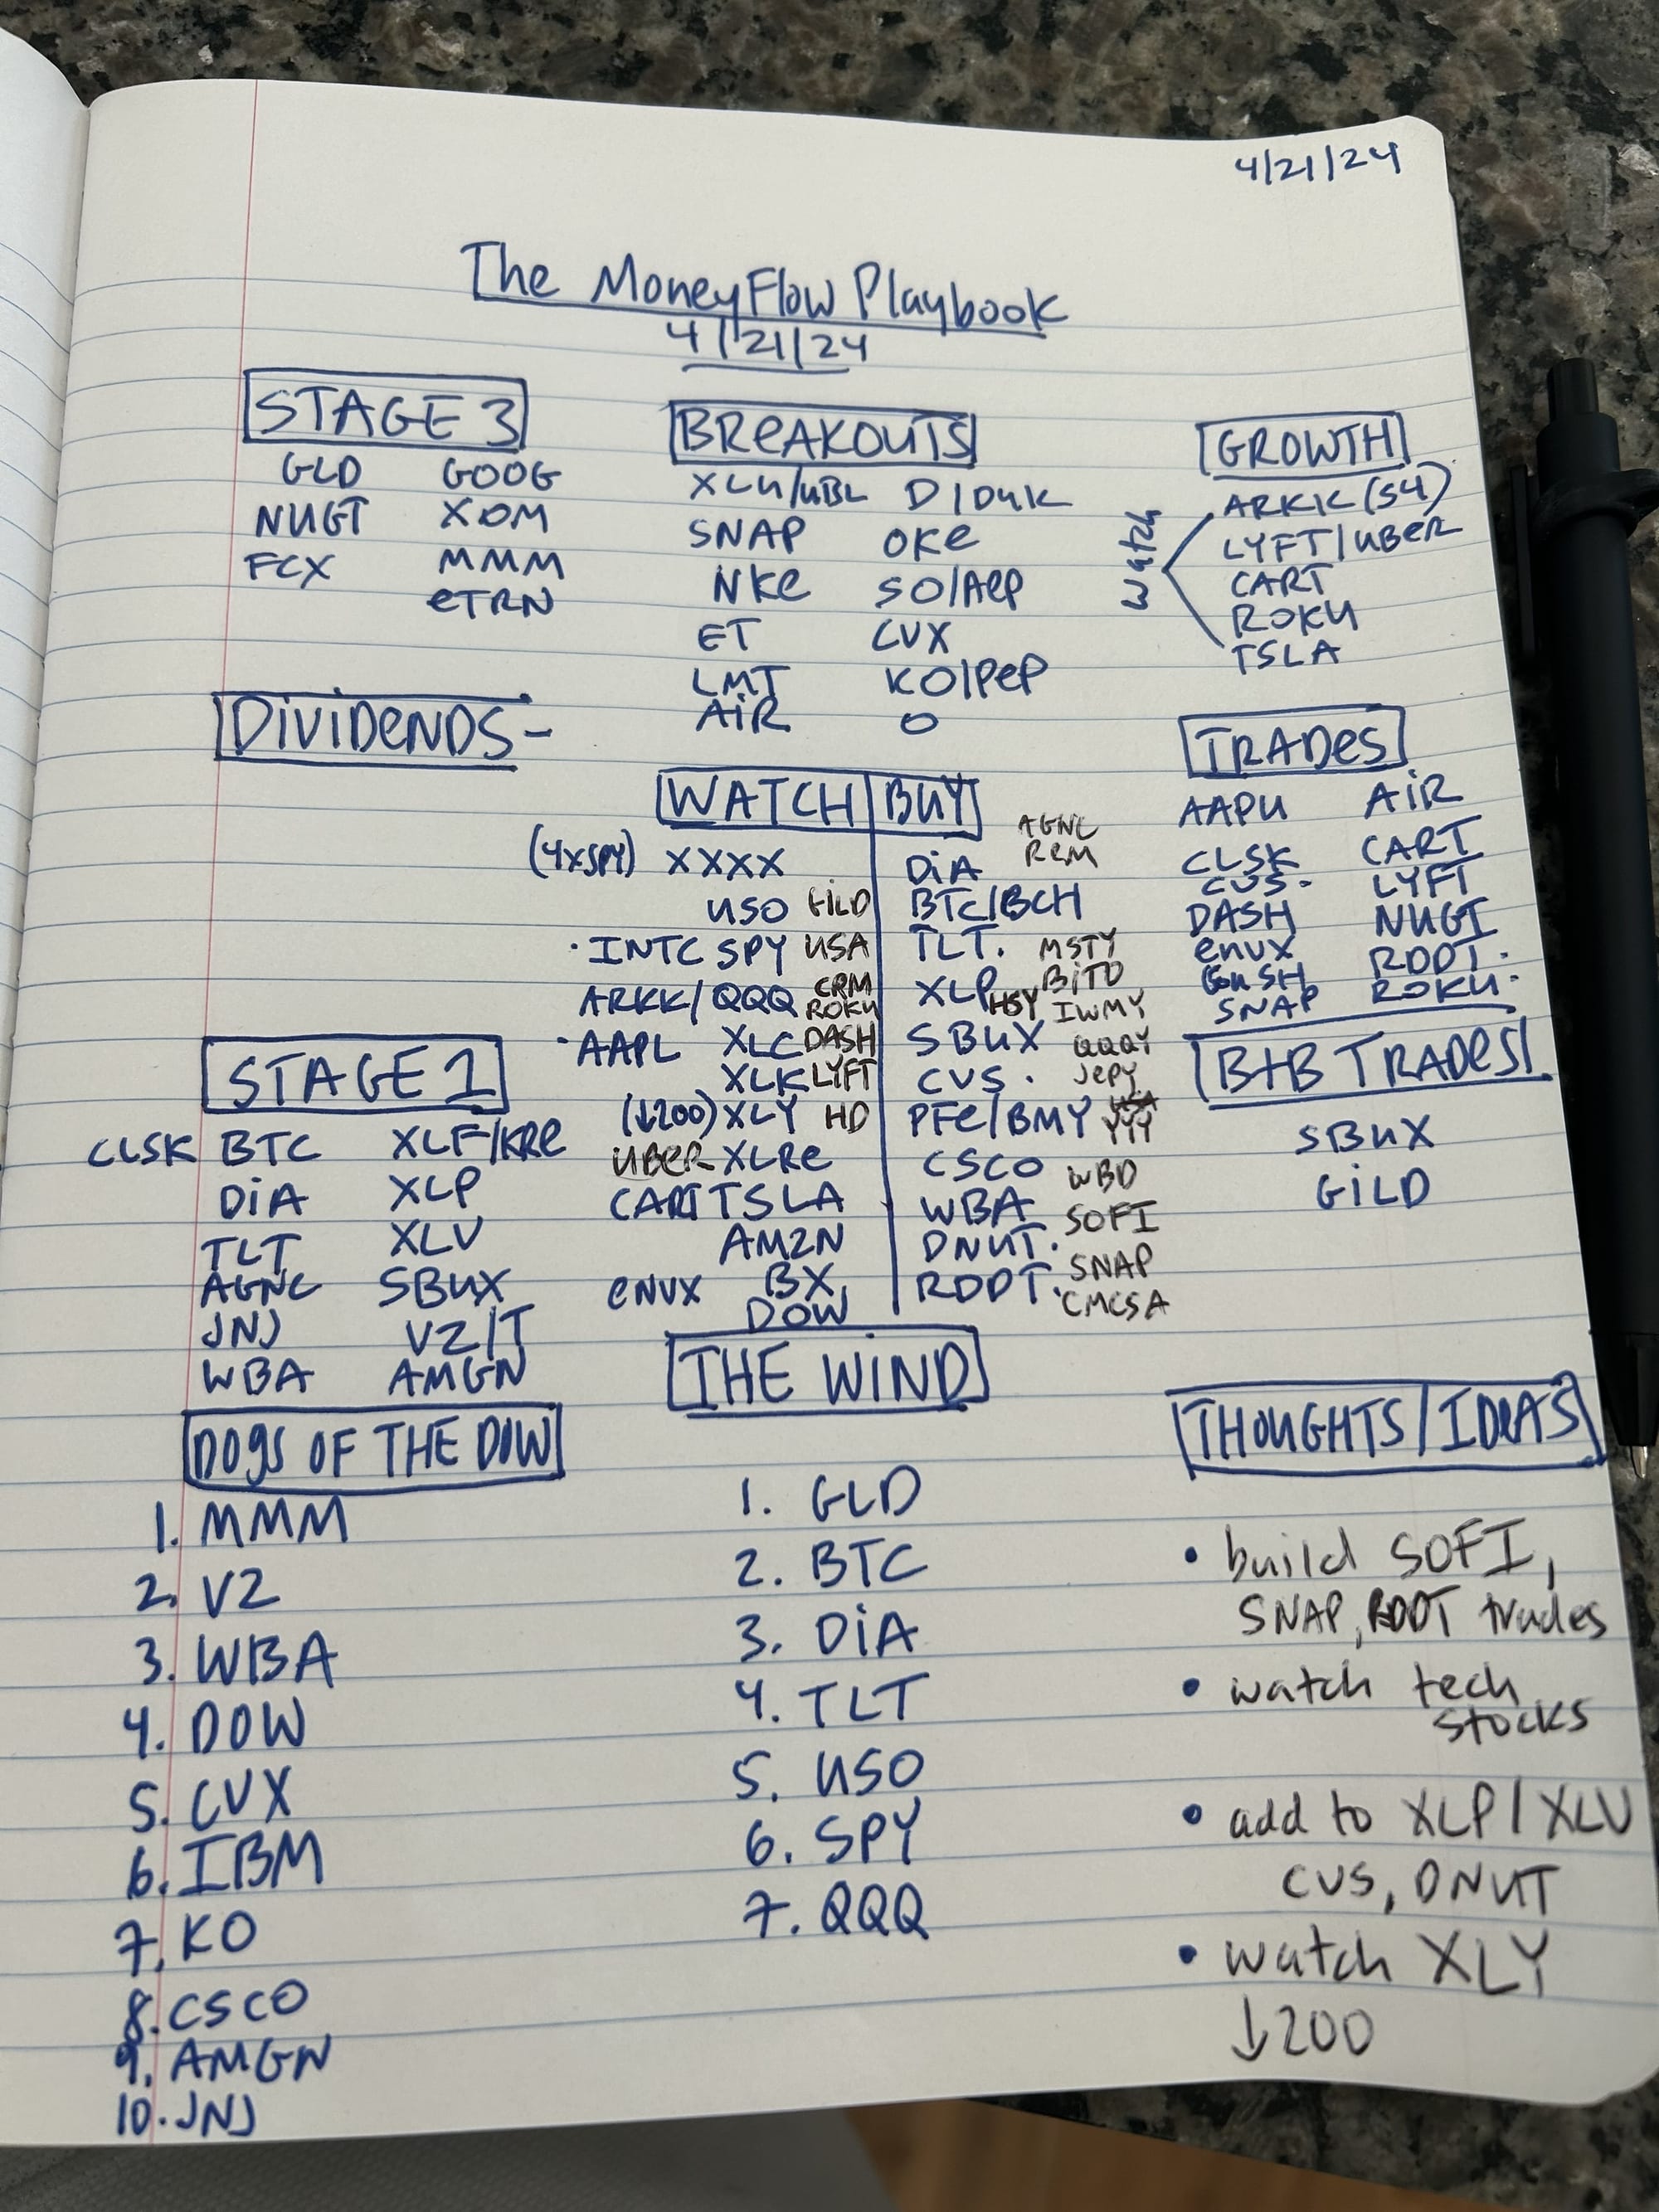 4/21/24
The MoneyFlow Playbook
4/21/24
STAGE 3
GLD GOOG
NUGT XOM
FCX MMM
eTRN
BReAKOUTS
XLU/UBL D/DUK
SNAP OKe
NKe SO/AeP
ET CVX
LMT KO/PeP
AiR O
GROWTH
watch
ARKK (S4)
LYFT/UBeR
CART
ROKU
TSLA
DiViDeNDS-
TRADes
AAPU AiR
CLSK CART
CVS. LYFT
DASH NUGT
eNVX RDDT.
GUSH ROKU.
SNAP
WATCH
(4xSPY) XXXX
USO GiLD
· INTC SPY USA
ARKK/QQQ CRM
ROKU
· AAPL XLC DASH
XLK LYFT
(↓200) XLY HD
UBeR XLRe
CART TSLA
AMZN
eNVX BX
DOW
BUY
AGNC
ReM
DiA
BTC/BCH
TLT. MSTY
BiTO
XLP HSY IWMY
SBUX QQQY
CVS. JePY
PFe/BMY YYY
CSCO WBD
WBA SOFI
DNUT.
SNAP
RDDT.
CMCSA
B+B TRADes
SBUX
GiLD
STAGE 1
CLSK BTC XLF/KRe
DiA XLP
TLT XLV
AGNC SBUX
JNJ VZ/T
WBA AMGN
DOgS OF THE DOW
1. MMM
2. VZ
3. WBA
4. DOW
5. CVX
6. IBM
7. KO
8. CSCO
9. AMGN
10. JNJ
THE WiND
1. GLD
2. BTC
3. DiA
4. TLT
5. USO
6. SPY
7. QQQ
THOUGHTS/IDeAS
• build SOFI,
SNAP, RDDT trades
• watch tech
stocks
• add to XLP/XLV
CVS, DNUT
• watch XLY
↓200